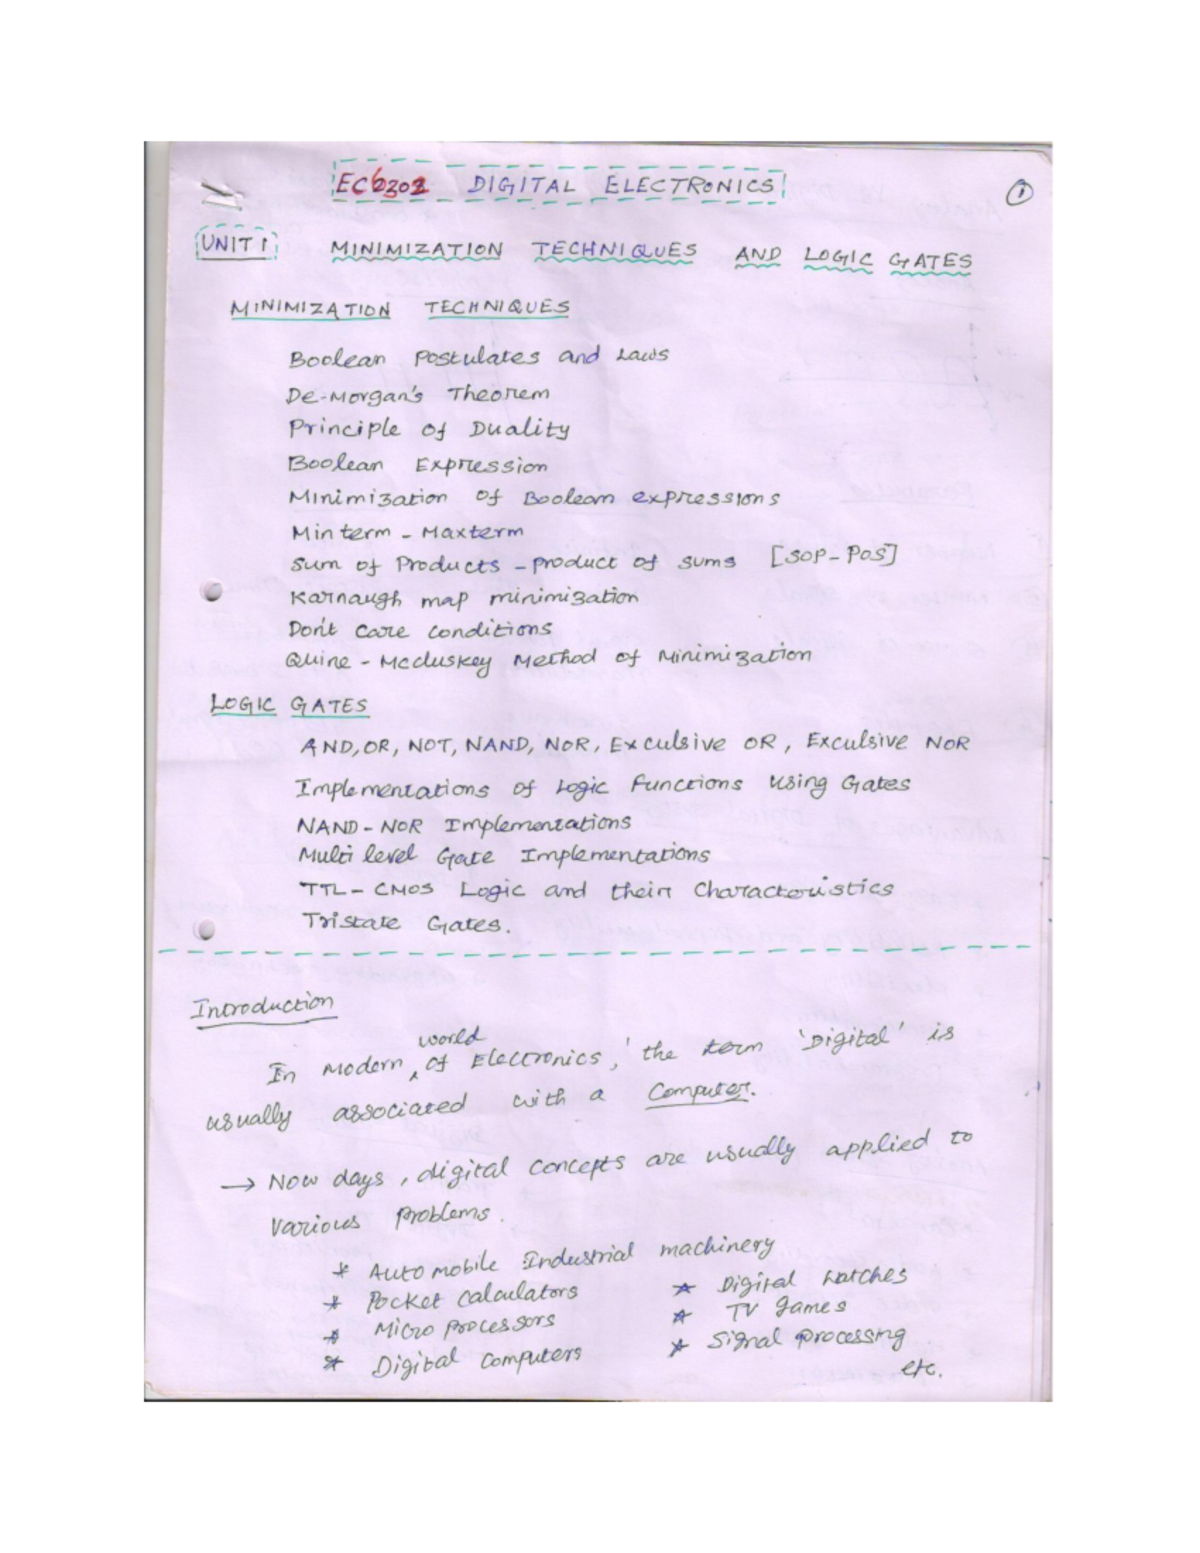 EC6302 DIGITAL ELECTRONICS
1
UNIT 1 MINIMIZATION TECHNIQUES AND LOGIC GATES
MINIMIZATION TECHNIQUES
Boolean Postulates and Laws
De-Morgan's Theorem
Principle of Duality
Boolean Expression
Minimization of Boolean expressions
Minterm - Maxterm
Sum of Products - product of sums [SOP-POS]
Karnaugh map minimization
Don't care conditions
Quine - Mccluskey Method of Minimization
LOGIC GATES
AND, OR, NOT, NAND, NOR, Exculsive OR, Exculsive NOR
Implementations of Logic Functions using Gates
NAND-NOR Implementations
Multi level Gate Implementations
TTL-CMOS Logic and their Characteristics
Tristate Gates.
Introduction
In Modern world of Electronics, the term 'Digital' is
usually associated with a Computer.
→ Now days, digital concepts are usually applied to
various problems.
* Automobile Industrial machinery
* Pocket calculators * Digital watches
* Micro processors * TV games
* Digital computers * Signal processing
etc.